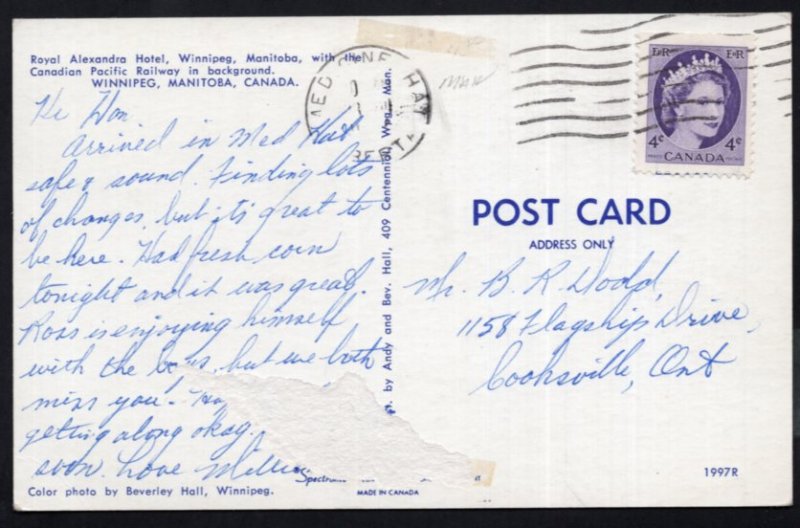 Royal Alexandra Hotel, Winnipeg, Manitoba, with the
Canadian Pacific Railway in background.
WINNIPEG, MANITOBA, CANADA.
Hi Hon
Arrived in Med Hat
safe & sound. Finding lots
of changes, but it's great to
be here. Had fresh corn
tonight and it was great.
Ross is enjoying himself
with the boys, but we both
miss you!
getting along okay.
soon. Love
Color photo by Beverley Hall, Winnipeg.
by Andy and Bev. Hall, 409 Centennial, Wpg., Man.
MADE IN CANADA
MEDICINE HAT
E R E R
4¢ 4¢
CANADA
POST CARD
ADDRESS ONLY
Mr. B. R. Dodd,
1158 Flagship Drive,
Cooksville, Ont
1997R